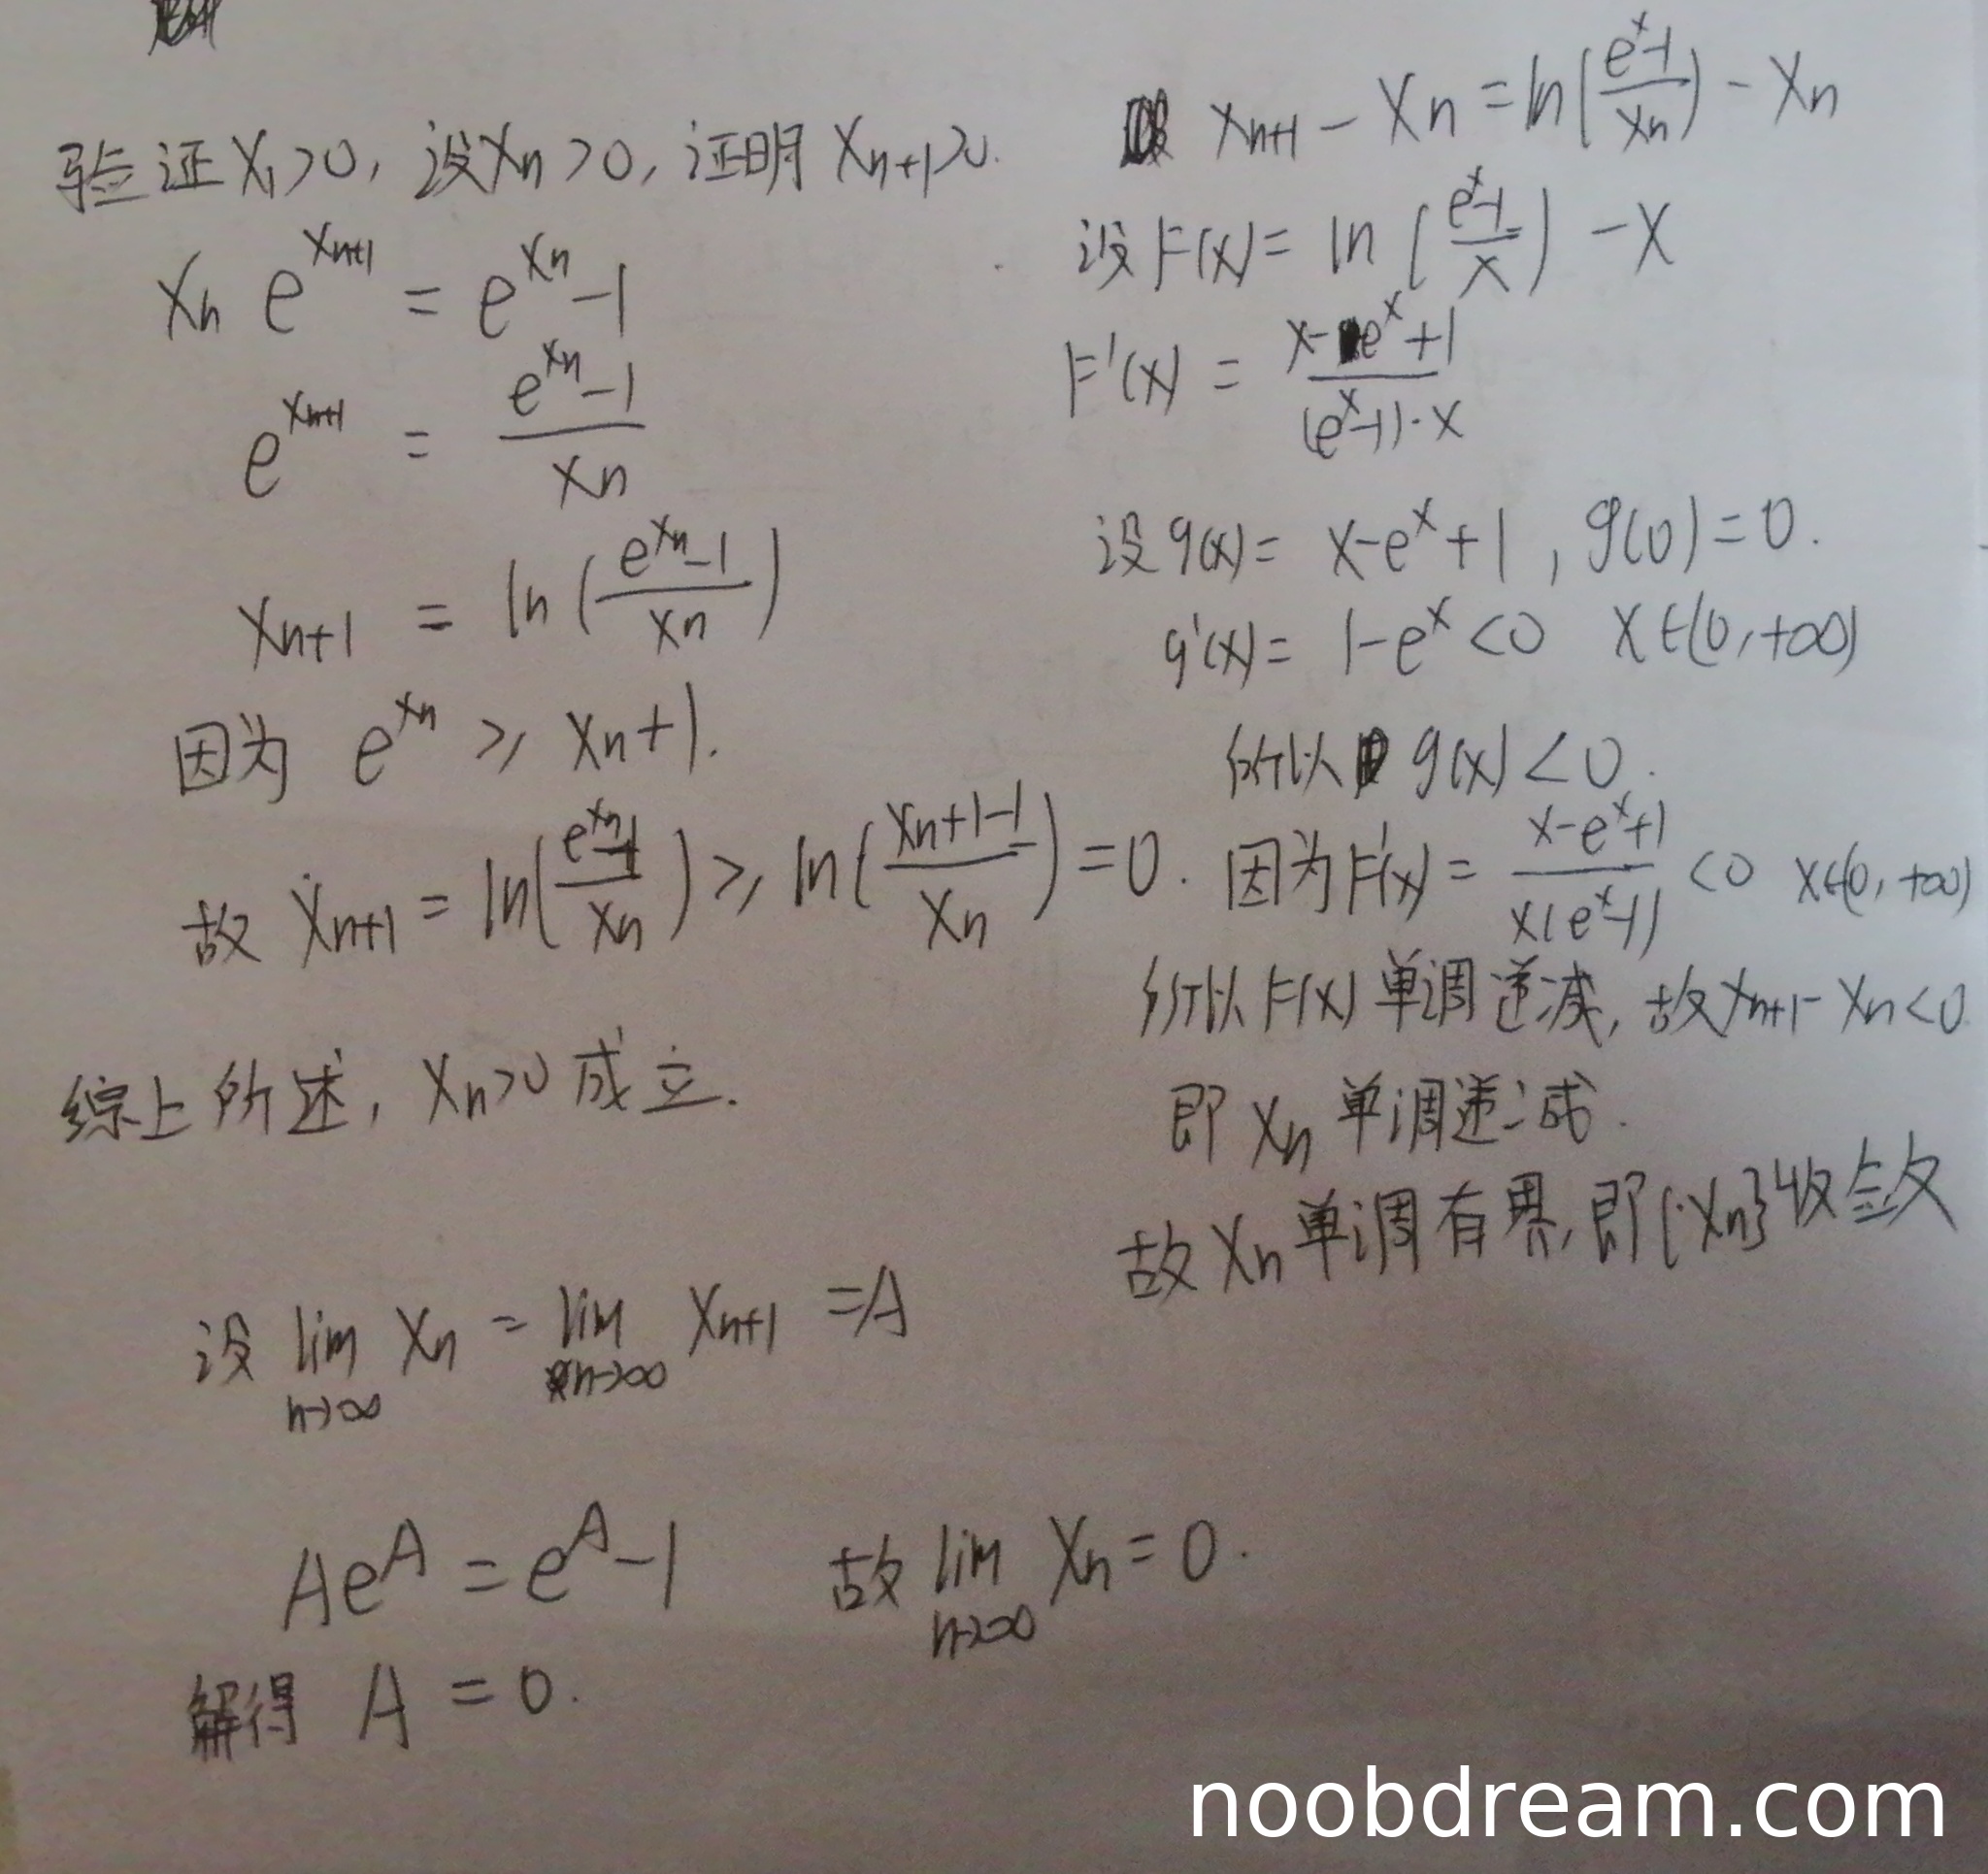 验证 x₁>0, 设xₙ>0, 证明 xₙ₊₁>0.
xₙ e^(xₙ₊₁) = e^(xₙ) - 1
e^(xₙ₊₁) = (e^(xₙ) - 1)/xₙ
xₙ₊₁ = ln((e^(xₙ) - 1)/xₙ)
因为 e^(xₙ) ≥ xₙ+1.
故 xₙ₊₁ = ln((e^(xₙ) - 1)/xₙ) ≥ ln((xₙ+1-1)/xₙ) = 0.
综上所述, xₙ>0 成立.
xₙ₊₁ - xₙ = ln((e^x - 1)/xₙ) - xₙ
设 F(x) = ln((e^x - 1)/x) - x
F'(x) = (x - e^x + 1)/((e^x - 1)·x)
设 g(x) = x - e^x + 1, g(0) = 0.
g'(x) = 1 - e^x < 0 x∈(0, +∞)
所以 g(x) < 0.
因为 F'(x) = (x - e^x + 1)/(x(e^x - 1)) < 0 x∈(0, +∞)
所以 F(x) 单调递减, 故 xₙ₊₁ - xₙ < 0
即 xₙ 单调递减.
故 xₙ 单调有界, 即{xₙ}收敛
设 lim(n→∞) xₙ = lim(n→∞) xₙ₊₁ = A
Ae^A = e^A - 1 故 lim(n→∞) xₙ = 0.
解得 A = 0.
noobdream.com